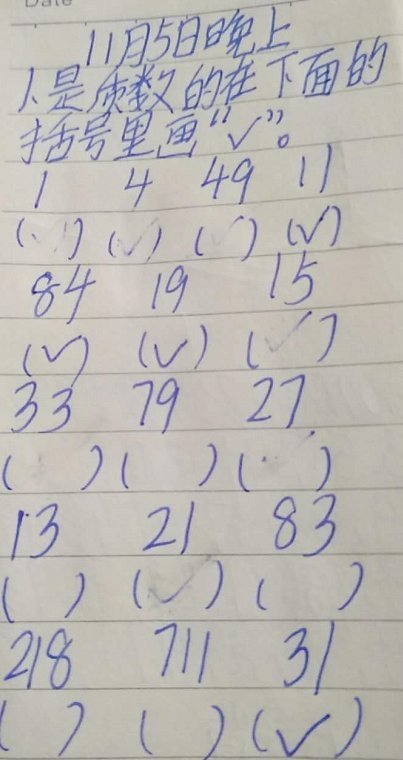 Date
11月5日晚上
1、是质数的在下面的
括号里画“✓”。
1 4 49 11
( ) ( ) ( ) (✓)
84 19 15
(✓) (✓) ( )
33 79 27
( ) ( ) ( )
13 21 83
( ) ( ) ( )
218 711 31
( ) ( ) (✓)